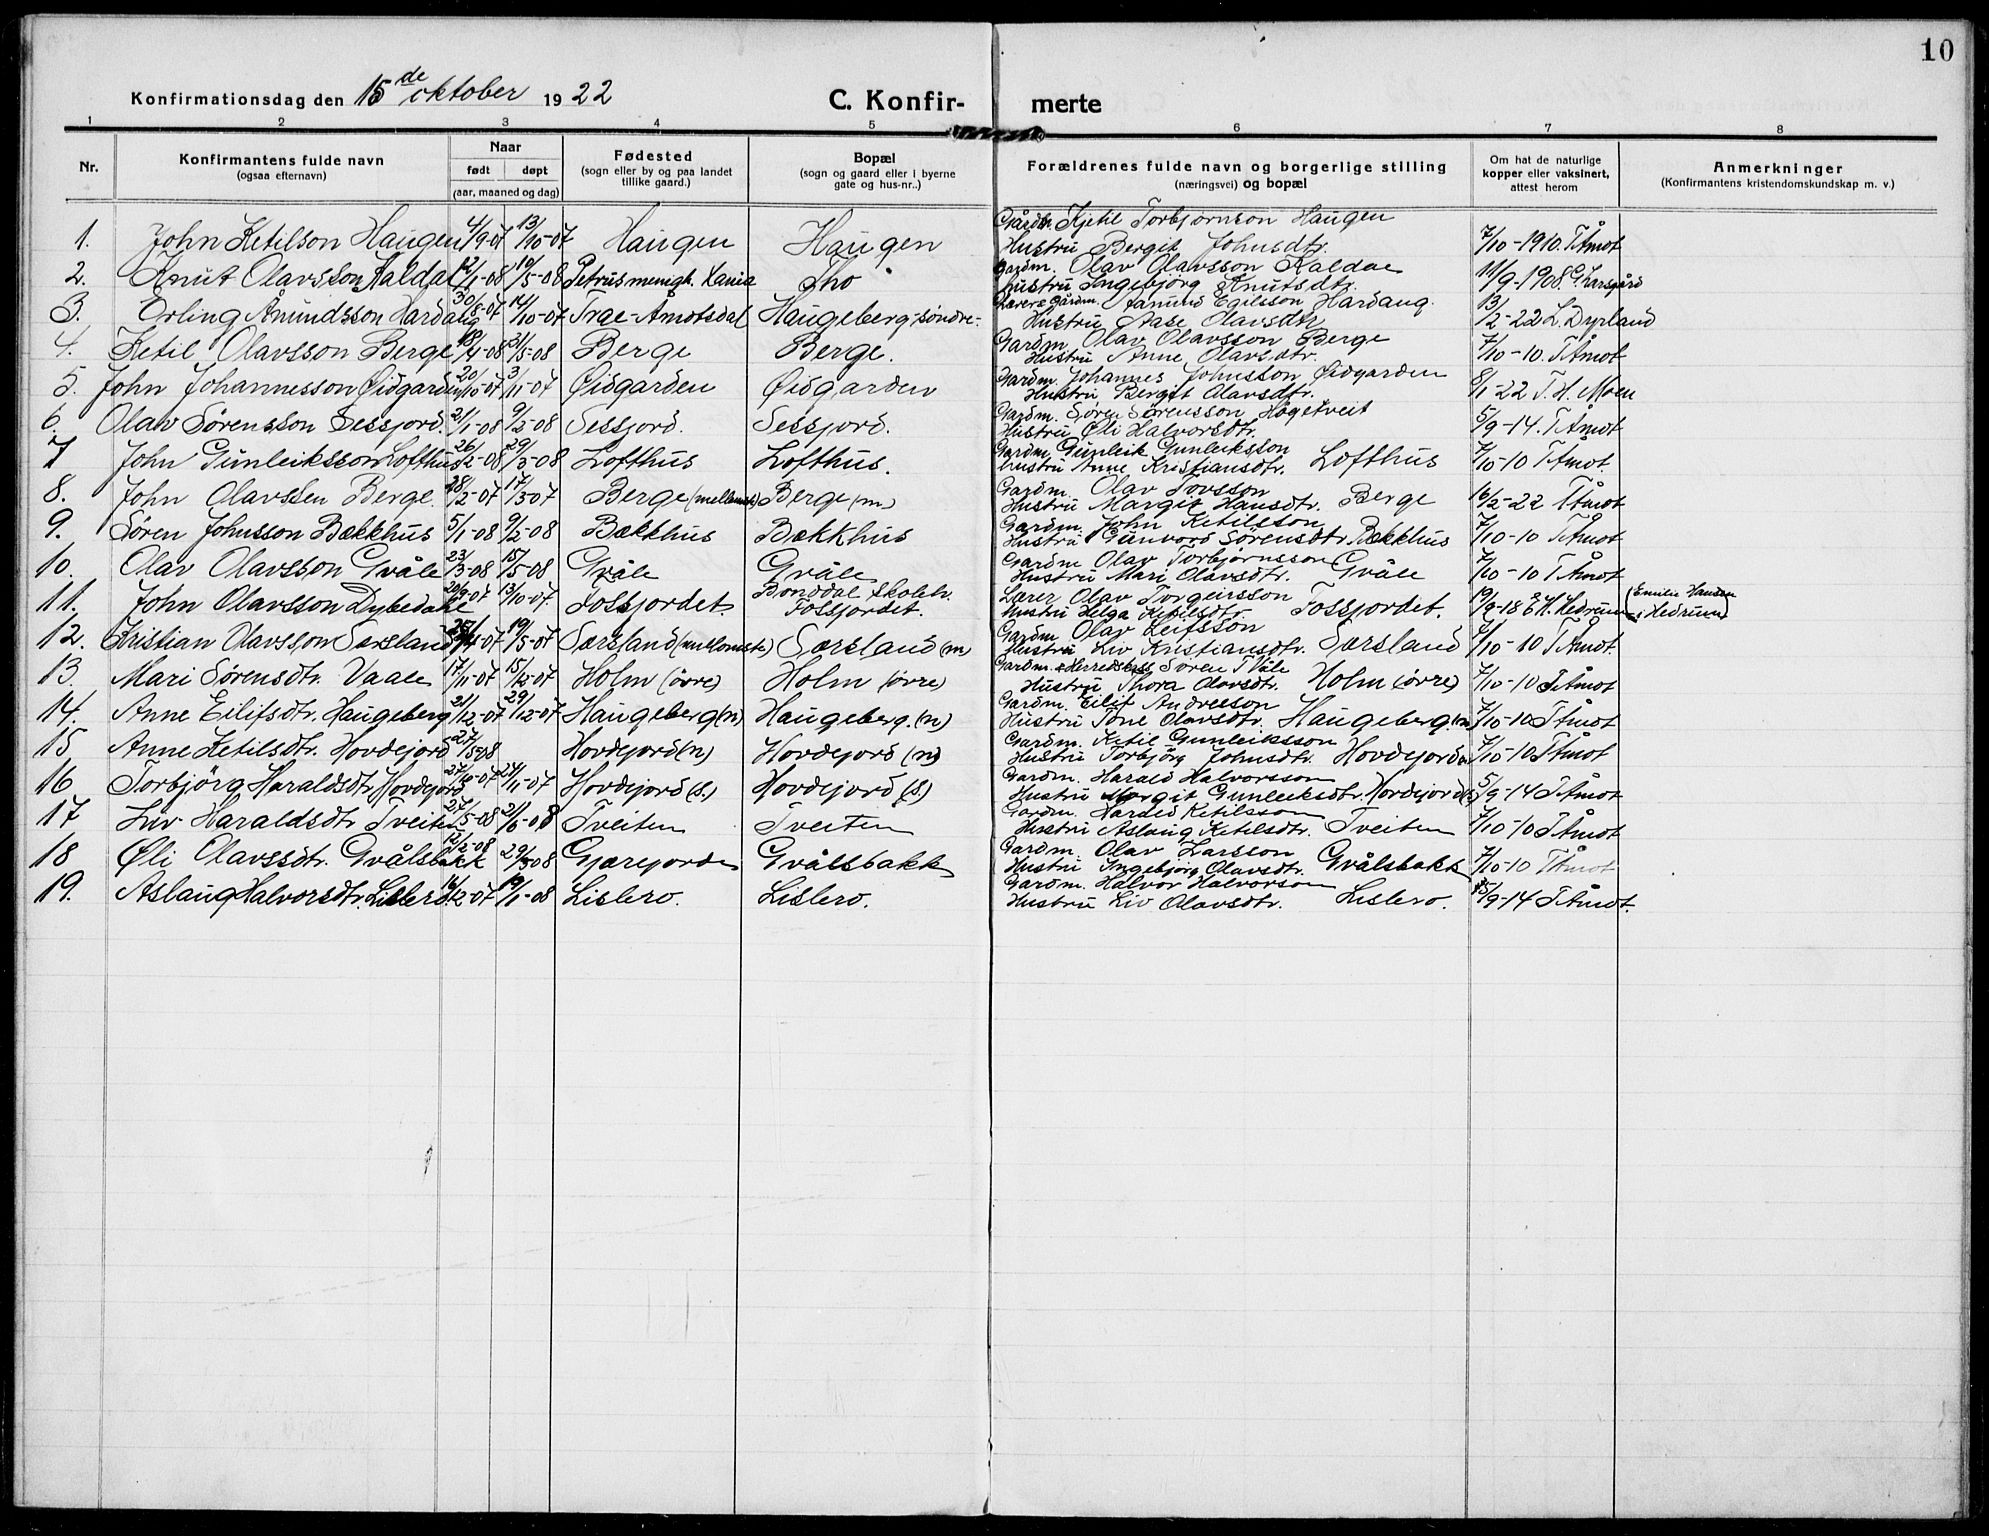 10
Konfirmationsdag den 15de oktober 1922 C. Konfir- merte
1 2 3 4 5 6 7 8
Nr. Konfirmantens fulde navn (ogsaa efternavn) Naar født døpt (aar, maaned og dag) Fødested (sogn eller by og paa landet tillike gaard.) Bopæl (sogn og gaard eller i byerne gate og hus-nr..) Forældrenes fulde navn og borgerlige stilling (næringsvei) og bopæl Om hat de naturlige kopper eller vaksinert, attest herom Anmerkninger (Konfirmantens kristendomskundskap m. v.)
1. John Ketilson Haugen 4/9-07 13/10-07 Haugen Haugen Gårdbr. Kjetil Torbjørnson Haugen
Hustru Bergit Johnsdtr. 7/10-1910. TÅmot
2. Knut Olavsson Kaldal 12/1-08 10/5-08 Petrus menigh. Xania Tho Gardm. Olav Olavsson Kaldal
hustru Ingebjørg Knutsdtr. 11/9-1908 G. Larsgård
3. Erling Åmundsson Hardaug 30/8-07 14/10-07 Trae-Åmotsdal Haugeberg-søndre- Lærer & Gårdm. Åmund Egilsson Hardaug.
Hustru Aase Olavsdtr 13/2-22 L. Dyrland
4. Ketil Olavsson Berge 18/4-08 31/5-08 Berge Berge. Gardm Olav Olavsson Berge
Hustru Anne Olavsdtr. 7/10-10. TÅmot
5. John Johannesson Øidgarden 20/10-07 3/11-07 Øidgarden Øidgarden Gardm. Johannes Johnsson Øidgarden
Hustru Bergit Olavsdtr. 8/1-22 T. H. Moen
6. Olav Sørensson Sessjord. 21/1-08 9/2-08 Sessjord. Sessjord. Gardm. Søren Sørensson Høgetveit
Hustru Øli Halvorsdtr. 5/9-14. TÅmot
7 John Gunleiksson Lofthus 26/2-08 29/3-08 Lofthus Lofthus. Gardm. Gunleik Gunleiksson
hustru Anne Kristiansdtr. Lofthus 7/10-10 TÅmot.
8. John Olavssen Berge 28/2-07 17/3-07 Berge (mellomst) Berge (m) Gardm. Olav Tovsson
Hustru Margit Hansdtr. Berge 16/2-22 TÅmot
9. Søren Johnsson Bækkhus 5/1-08 9/2-08 Bækkhus Bækkhus Gardm. John Ketilsson
Hustru Gunvord Sørensdtr Bækkhus 7/10-10 TÅmot
10. Olav Olavsson Gvåle 23/3-08 15/5-08 Gvåle Gvåle Gardm Olav Torbjørnsson
Hustru Mari Olavsdtr. Gvåle 7/10-10 TÅmot
11. John Olavsson Dybedahl 20/9-07 13/10-07. Fossjordet. Bonddal skoleh. Fossjordet. Lærer Olav Torgeirsson
Hustru Helga Ketilsdtr. Fossjordet. 19/9-18 E. H. Hedrum (Emilie Hansen, Hedrum)
12. Kristian Olavsson Sørsland 28/4-07 19/5-07 Sørsland (mellomste) Sørsland (m Gardm Olav Leifsson
Hustru Liv Kristiansdtr. Sørsland 7/10-10 TÅmot.
13. Mari Sørensdtr. Vaale 17/11-07 15/12-07 Holm (øvre) Holm (øvre) Gardm. & Herredskass Søren T Våle
Hustru Thora Olavsdtr. Holm (øvre) 7/10-10 TÅmot
14. Anne Eilifsdtr. Haugeberg 2/12-07 29/12-07 Haugeberg (n) Haugeberg. (n) Gardm. Eilif Andresson
Hustru Tone Olavsdtr. Haugeberg (n) 7/10-10 TÅmot
15 Anne Ketilsdtr. Hovdejord 27/5-08 Hovdejord (n) Hovdejord (n) Gardm. Ketil Gunleiksson
Hustru Torbjørg Johnsdtr. Hovdejord 7/10-10 TÅmot
16 Torbjørg Haraldsdtr Hovdejord 27/10-07 24/11-07 Hovdejord (s.) Hovdejord (s.) Gardm. Harald Halvorsson
Hustru Margit Gunleiksdtr. Hovdejord (s) 5/9-14 TÅmot
17 Liv Haraldsdtr Tveiten 27/5-08 21/6-08 Tveiten Tveiten Gardm. Harald Ketilsson
Hustru Aslaug Ketilsdtr. Tveiten 7/10-10 TÅmot
18 Øli Olavssdtr. Gvålsbakk 12/2-08 29/3-08 Gjærejorde Gvålsbakk Gardm. Olav Larsson
Hustru Ingebjørg Olavsdtr. Gvålsbakk 7/10-10 TÅmot
19. Aslaug Halvorsdtr. Lislerd. 16/12-07 19/1-08 Lislero. Lislero. Gardm. Halvor Halvorson
Hustru Liv Olavsdtr. Lislero. 5/9-14 TÅmot.